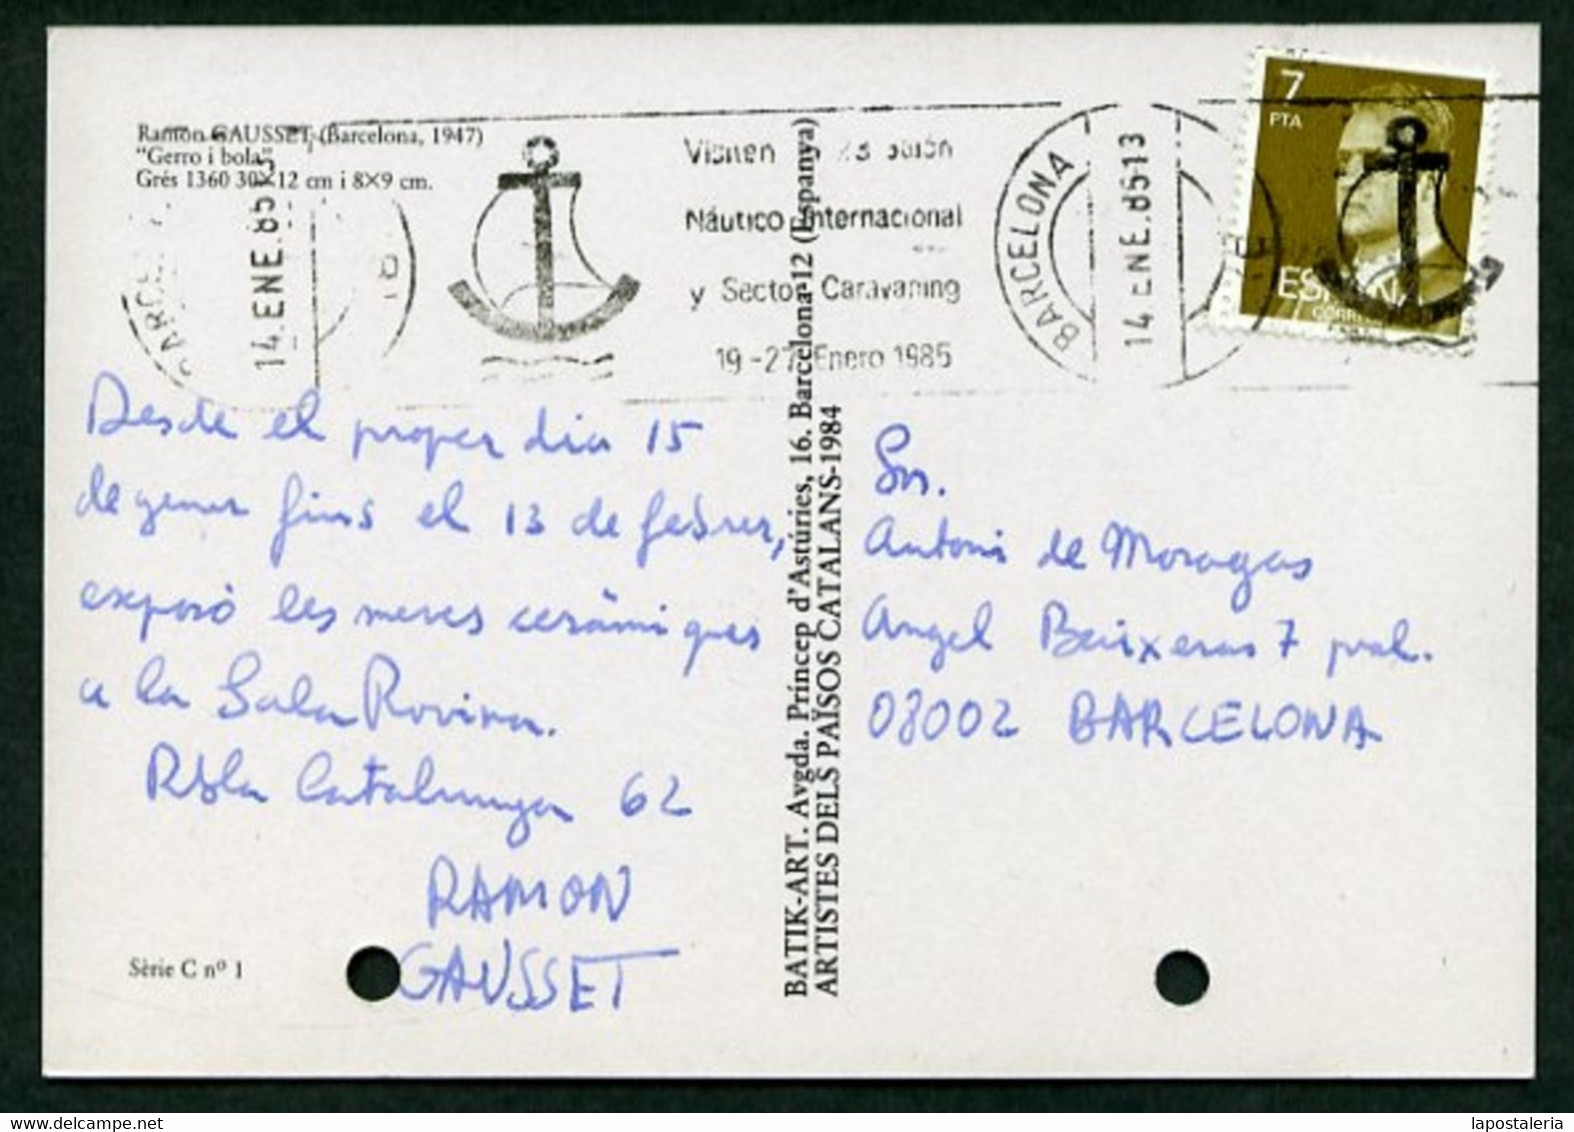 Ramón GAUSSET (Barcelona, 1947)
"Gerro i bola"
Grés 1360 30×12 cm i 8×9 cm.
14 ENE. 85
Visiten 23 Salón
Náutico Internacional
y Sector Caravaning
19-27 Enero 1985
BARCELONA
14 ENE. 85 13
7
PTA
ESPAÑA
CORREOS
Desde el proper dia 15
de gener fins el 13 de febrer,
exposo les meves ceràmiques
a la Sala Rovira.
Rbla Catalunya 62
RAMON
GAUSSET
Sèrie C nº 1
BATIK-ART. Avgda. Príncep d'Astúries, 16. Barcelona-12 (Espanya)
ARTISTES DELS PAÏSOS CATALANS-1984
Srs.
Antoni de Moragas
Angel Baixeras 7 pral.
08002 BARCELONA
lapostaleria